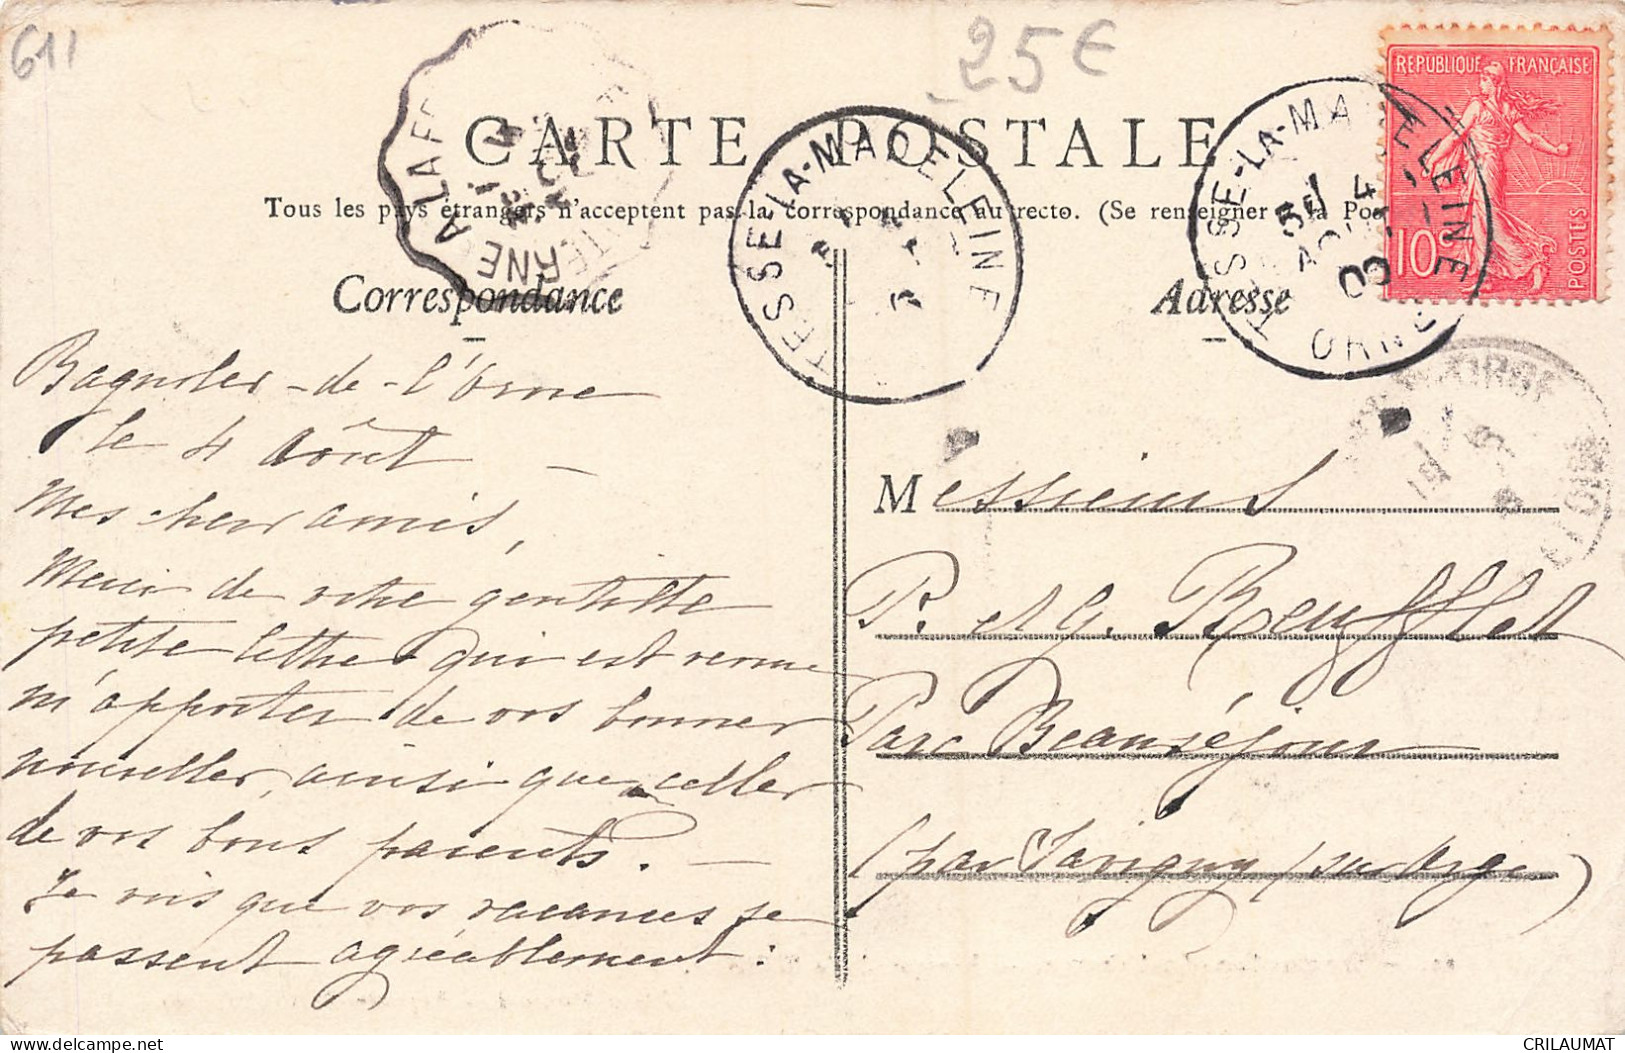 611
25€
CARTE POSTALE
Tous les pays étrangers n'acceptent pas la correspondance au recto. (Se renseigner à la Pos
Correspondance
Adresse
REPUBLIQUE FRANÇAISE
10c
POSTES
TESSE-LA-MADELEINE
TESSE-LA-MADELEINE
ORNE
4
AOUT
09
A LAF
RNE
Bagnoles-de-l'Orne
le 4 Août —
Mes chers amis,
Merci de votre gentille
petite lettre qui est venue
m'apporter de vos bonnes
nouvelles, ainsi que celles
de vos bons parents. —
Je vois que vos vacances se
passent agréablement :
Messieurs
P. et G. Reufflet
Parc Beauséjour
(par Savigny sur Orge)
CRILAUMAT